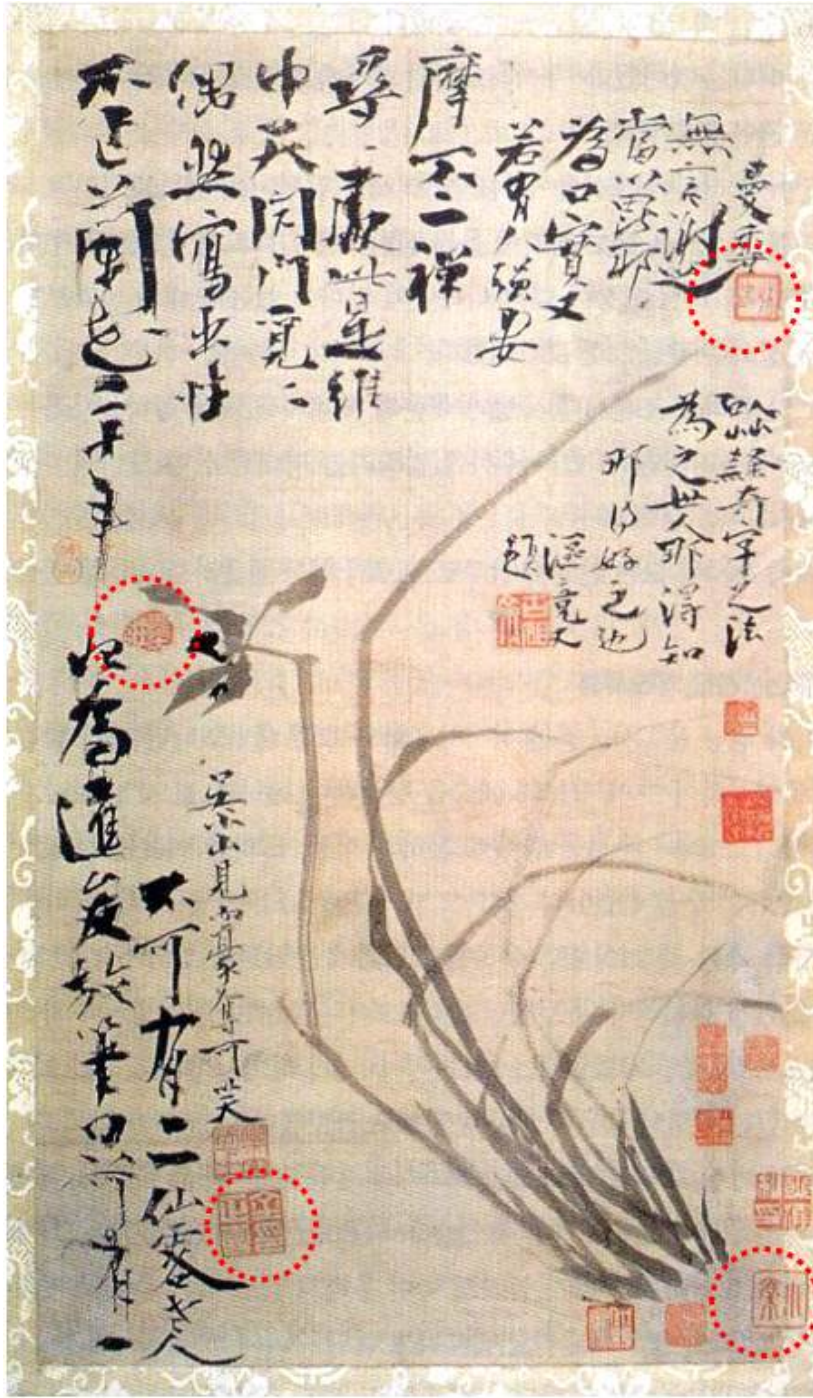 不作蘭畵二十年
偶然寫出性
中天閉門覓〻
尋〻處此是維
摩不二禪
若有人强要
爲口實又
當以毘耶
無言謝之
曼香
以草隸奇字之法
爲之世人那得知
那得好之也
漚竟又
題
始爲達俊放筆只可有一
不可有二仙客老人
吳小山見而豪奪可笑